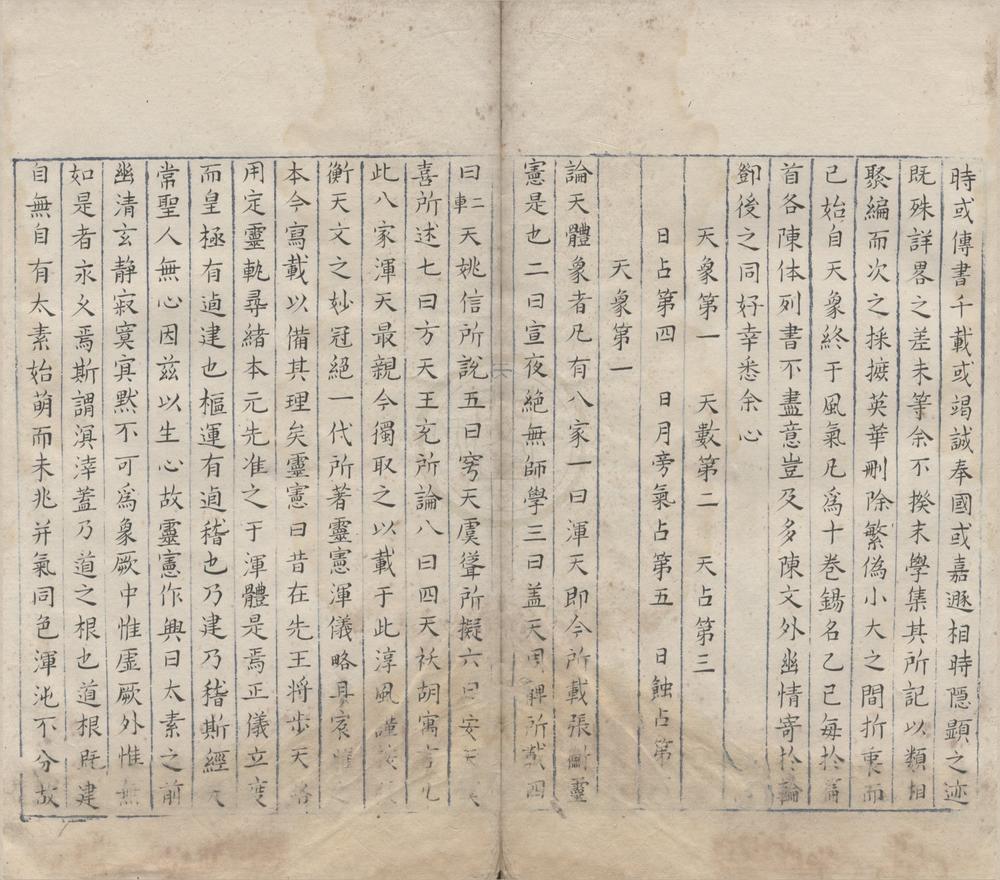 時或傳書千載或竭誠奉國或嘉遯相時隱顯之迹
既殊詳畧之差未等余不揆末學集其所記以類相
聚編而次之採摭英華刪除繁偽小大之間折衷而
已始自天象終于風氣凡為十卷錫名乙巳每於篇
首各陳体列書不盡意豈及多陳文外幽情寄於論
卹後之同好幸悉余心
天象第一 天數第二 天占第三
日占第四 日月旁氣占第五 日蝕占第
天象第一
論天體象者凡有八家一曰渾天即今所載張衡靈
憲是也二曰宣夜絶無師學三曰盖天周髀所載四
曰軒天姚信所說五曰穹天虞聳所擬六曰安天
喜所述七曰方天王充所論八曰四天祅胡寓言凡
此八家渾天最親今獨取之以載于此淳風謹按
衡天文之妙冠絕一代所著靈憲渾儀略具宸
本今寫載以備其理矣靈憲曰昔在先王将步天路
用定靈軌尋緒本元先准之于渾體是焉正儀立度
而皇極有逌建也樞運有逌稽也乃建乃稽斯經天
常聖人無心因茲以生心故靈憲作興曰太素之前
幽清玄静寂寞冥默不可爲象厥中惟虛厥外惟無
如是者永乆焉斯謂溟涬蓋乃道之根也道根既建
自無自有太素始萌而未兆并氣同色渾沌不分故